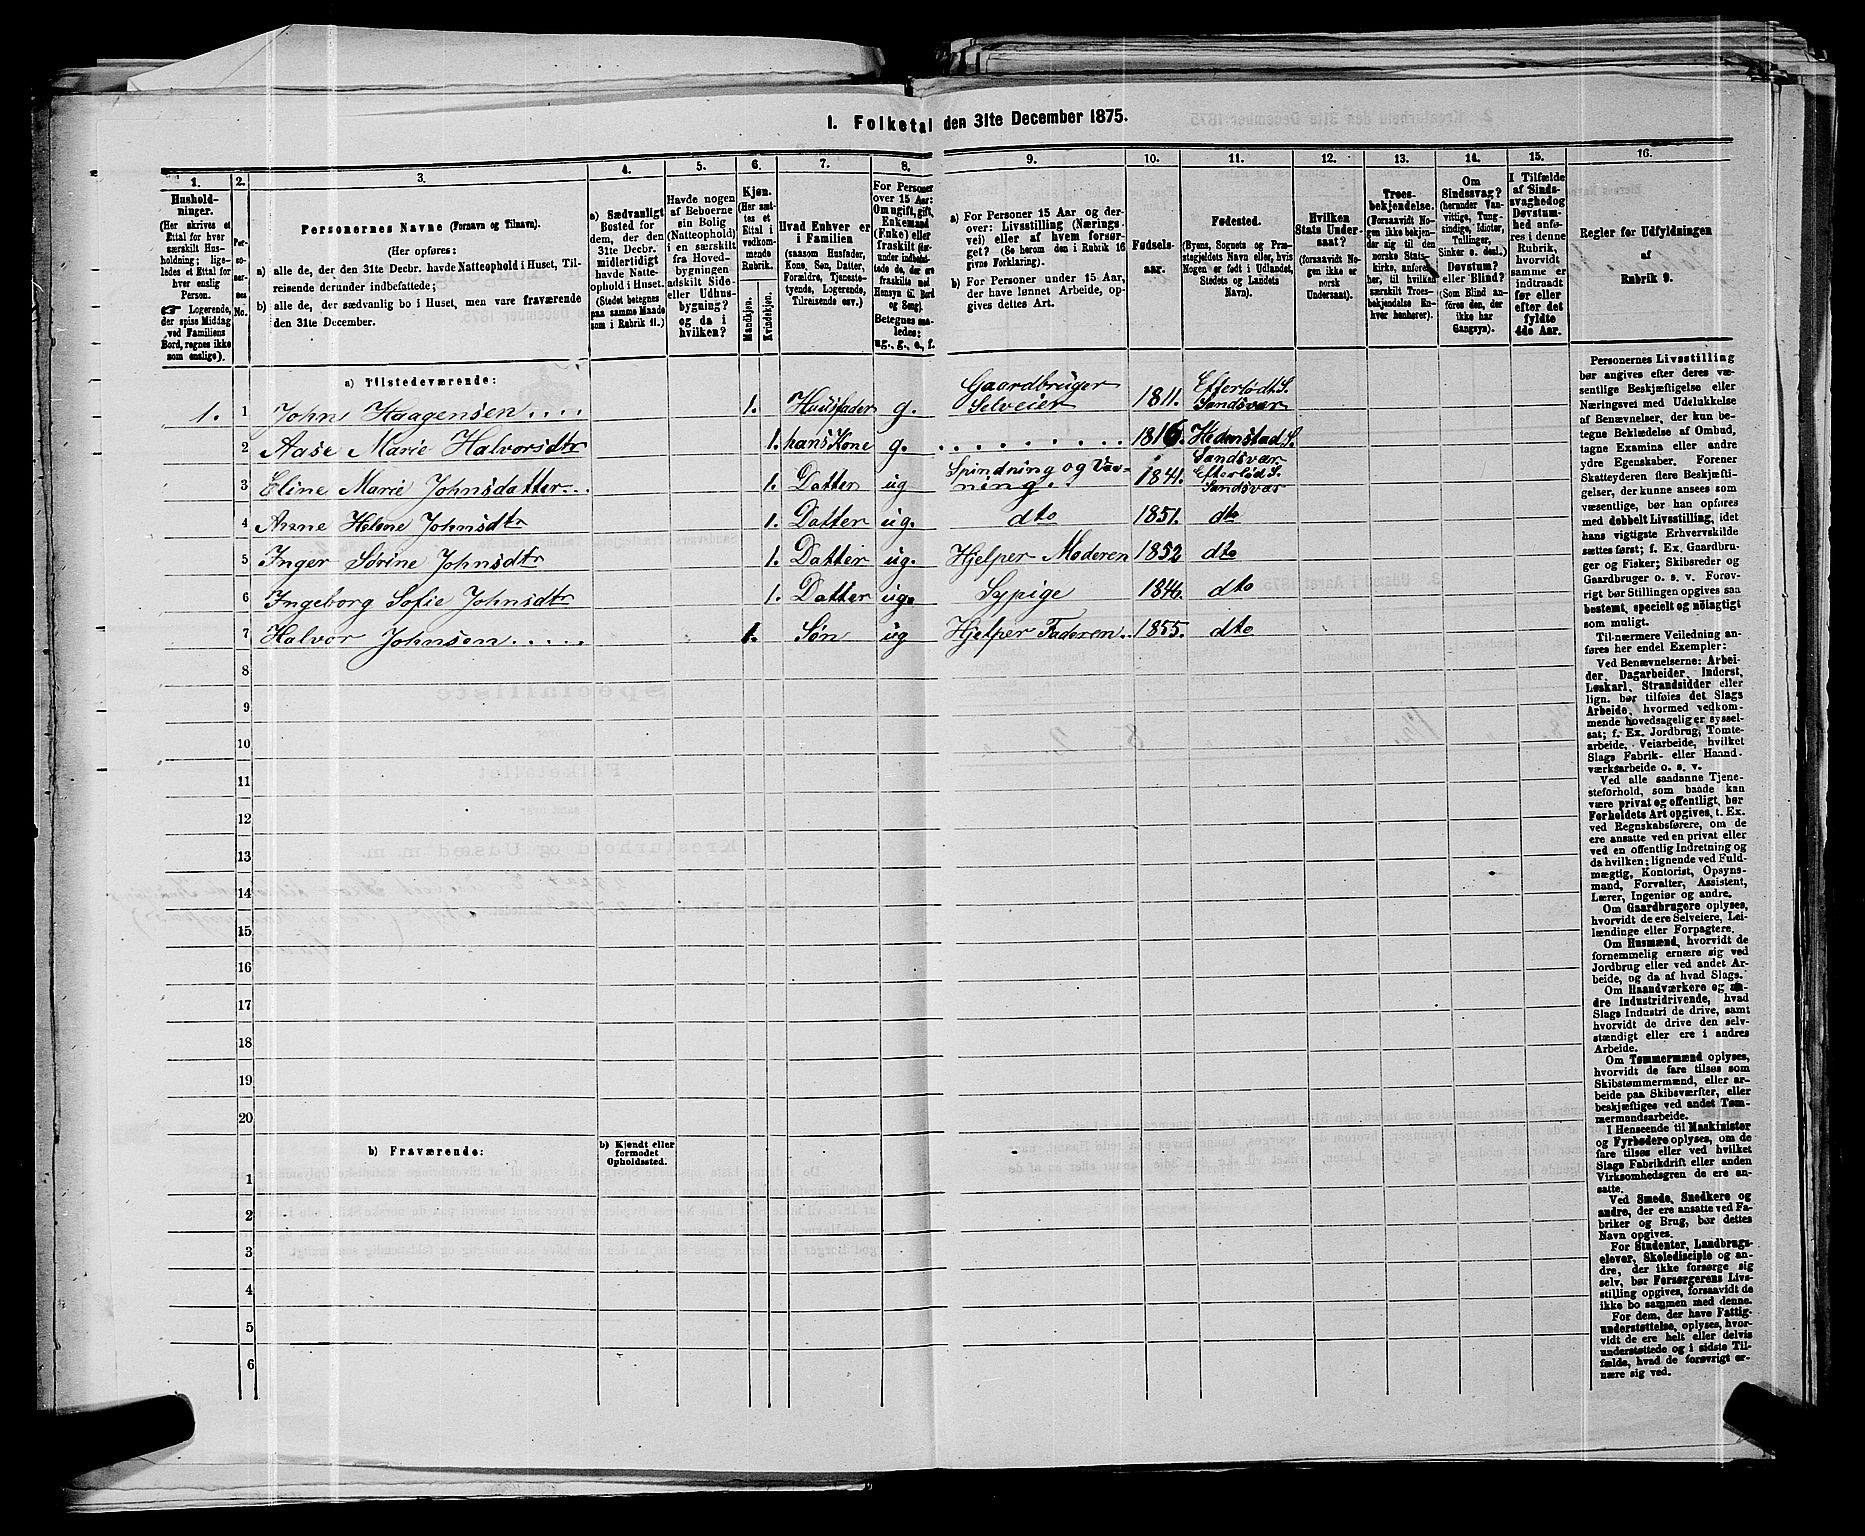 1. Folketal den 31te December 1875.
1. 2. 3. 4. 5. 6. 7. 8. 9. 10. 11. 12. 13. 14. 15. 16.
Hushold-
ninger.
(Her skrives et
Ettal for hver
særskilt Hus-
holdning; lige-
ledes et Ettal for
hver enslig
Person.
☛ Logerende,
der spise Middag
ved Familiens
Bord, regnes ikke
som enslige).
Per-
so-
ner-
nes
No.
Personernes Navne (Fornavn og Tilnavn).
(Her opføres:
a) alle de, der den 31te Decbr. havde Natteophold i Huset, Til-
reisende derunder indbefattede;
b) alle de, der sædvanlig bo i Huset, men vare fraværende
den 31te December.
a) Sædvanligt
Bosted for
dem, der den
31te Decbr.
midlertidigt
havde Natte-
ophold i Huset.
(Stedet betegnes
paa samme Maade
som i Rubrik 11.)
Havde nogen
af Beboerne
sin Bolig
(Natteophold)
i en særskilt
fra Hoved-
bygningen
adskilt Side-
eller Udhus-
bygning?
og da i
hvilken?
Kjøn.
(Her sæt-
tes et
Ettal i
vedkom-
mende
Rubrik.
Mandkjøn.
Kvindekjøn.
Hvad Enhver er
i Familien
(saasom Husfader,
Kone, Søn, Datter,
Forældre, Tjeneste-
tyende, Logerende,
Tilreisende osv.)
For Personer
over 15 Aar:
Om ugift, gift,
Enkemand
(Enke) eller
fraskilt (der-
under indbefat-
tede de, der ere
fraskilte med
Hensyn til Bord
og Seng).
Betegnes saa-
ledes:
ug., g., e., f.
a) For Personer 15 Aar og der-
over: Livsstilling (Nærings-
vei) eller af hvem forsør-
get? (Se herom den i Rubrik 16
givne Forklaring).
b) For Personer under 15 Aar,
der have lønnet Arbeide, op-
gives dettes Art.
Fødsels-
aar.
Fødested.
(Byens, Sognets og Præ-
stegjeldets Navn eller, hvis
Nogen er født i Udlandet,
Stedets og Landets
Navn).
Hvilken
Stats Under-
saat?
(forsaavidt No-
gen ikke er
norsk
Undersaat).
Troes-
bekjendelse.
(Forsaavidt No-
gen ikke bekjen-
der sig til den
norske Stats-
kirke, anføres
her, til hvilken
særskilt Troes-
bekjendelse En-
hver henhører).
Om
Sindssvag?
(herunder Van-
vittige, Tung-
sindige, Idioter,
Tullinger,
Sinker o. desl.)
Døvstum?
eller Blind?
(Som Blind an-
føres den, der
ikke har
Gangsyn).
I Tilfælde
af Sinds-
svaghed og
Døvstum-
hed anfø-
res i denne
Rubrik,
hvorvidt
samme er
indtraadt
før eller
efter det
fyldte
4de Aar.
Regler før Udfyldningen
af
Rubrik 9.
a) Tilstedeværende:
1. 1 John Haagensen.... 1. Huusfader g. Gaardbruger Selveier 1811. Efterlødt S. Sandsvær
2 Aase Marie Halvorsdtr 1. hans Kone g. ......... 1816. Hedenstad S. Sandsvær
3 Eline Marie Johnsdatter... 1. Datter ug Spindning og Væv-ning.. 1841. Efterlød S. Sandsvær
4 Anne Helene Johnsdtr 1. Datter ug. dto 1851. dto
5 Inger Sørine Johnsdtr 1. Datter ug. Hjelper Moderen 1852 dto
6 Ingeborg Sofie Johnsdtr 1. Datter ug. Sypige 1846. dto
7 Halvor Johnsen..... 1. Søn ug Hjelper Faderen.. 1855. dto
8
9
10
11
12
13
14
15
16
17
18
19
20
b) Fraværende:
b) Kjendt eller
formodet
Opholdssted.
1
2
3
4
5
6
Personernes Livsstilling
bør angives efter deres væ-
sentlige Beskjæftigelse eller
Næringsvei med Udelukkelse
af Benævnelser, der kun be-
tegne Beklædelse af Ombud,
tagne Examina eller andre
ydre Egenskaber. Forener
Skatteyderen flere Beskjæfti-
gelser, der kunne ansees som
væsentlige, bør han opføres
med dobbelt Livsstilling, idet
hans vigtigste Erhvervskilde
sættes først; f. Ex. Gaardbru-
ger og Fisker; Skibsreder og
Gaardbruger o. s. v. Forøv-
rigt bør Stillingen opgives saa
bestemt, specielt og nöiagtigt
som muligt.
Til nærmere Veiledning an-
føres her endel Exempler:
Ved Benævnelserne: Arbei-
der, Dagarbeider, Inderst,
Løskarl, Strandsidder eller
lign. bør tilføies det Slags
Arbeide, hvormed vedkom-
mende hovedsagelig er syssel-
sat; f. Ex. Jordbrug, Tomte-
arbeide, Veiarbeide, hvilket
Slags Fabrik- eller Haand-
værksarbeide o. s. v.
Ved alle saadanne Tjene-
steforhold, som baade kan
være privat og offentligt, bør
Forholdets Art opgives, t. Ex.
ved Regnskabsførere, om de
ere ansatte ved en privat eller
ved en offentlig Indretning og
da hvilken; lignende ved Fuld-
mægtig, Kontorist, Opsyns-
mand, Forvalter, Assistent,
Lærer, Ingeniør og andre.
Om Gaardbrugere oplyses,
hvorvidt de ere Selveiere, Lei-
lændinge eller Forpagtere.
Om Husmænd, hvorvidt de
fornemmelig ernære sig ved
Jordbrug eller ved andet Ar-
beide, og da af hvad Slags.
Om Haandværkere og an-
dre Industridrivende, hvad
Slags Industri de drive, samt
hvorvidt de drive den selv-
stændigt eller ere i andres
Arbeide.
Om Tømmermænd oplyses,
hvorvidt de fare tilsøs som
Skibstømmermænd, eller ar-
beide paa Skibsværfter, eller
beskjæftiges ved andet Tøm-
mermandsarbeide.
I Henseende til Maskinister
og Fyrbødere oplyses, om de
fare tilsøs eller ved hvilket
Slags Fabrikdrift eller anden
Virksomhedsgren de ere an-
satte.
Ved Smede, Snedkere og
andre, der ere ansatte ved Fa-
briker og Brug, bør dettes
Navn opgives.
For Studenter, Landbrugs-
elever, Skoledisciple og an-
dre, der ikke forsørge sig
selv, bør Forsørgerens Livs-
stilling opgives, forsaavidt de
ikke bo sammen med denne.
For dem, der have Fattig-
understøttelse, oplyses, hvor-
vidt de ere helt eller delvis
understøttede og i sidste Til-
fælde, hvad de forøvrigt er-
nære sig ved.